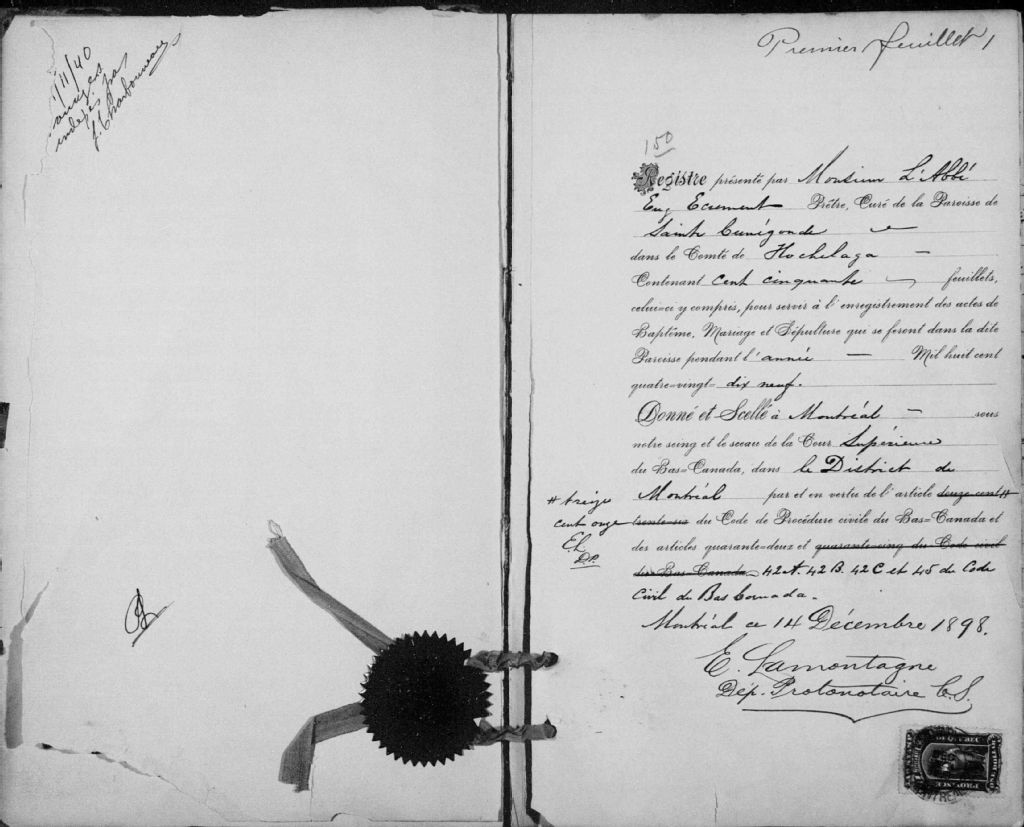 1/11/40
indexés par
J. Charbonneau
Premier feuillet 1
150
Registre présenté par Monsieur L'Abbé
Eug Ecrement Prêtre, Curé de la Paroisse de
Sainte Cunégonde
dans le Comté de Hochelaga —
Contenant cent cinquante — feuillets,
celui-ci y compris, pour servir à l'enregistrement des actes de
Baptême, Mariage et Sépulture qui se feront dans la dite
Paroisse pendant l'année — Mil huit cent
quatre-vingt- dix neuf.
Donné et Scellé à Montréal — sous
notre seing et le sceau de la Cour Supérieure
du Bas-Canada, dans le District de
Montréal par et en vertu de l'article douze cent #
# treize
cent onze
E.L.
D.P.
trente-six du Code de Procédure civile du Bas-Canada et
des articles quarante-deux et quarante-cinq du Code civil
du Bas-Canada 42A. 42B. 42C et 45 du Code
Civil du Bas Canada.
Montréal ce 14 Décembre 1898.
E. Lamontagne
Dép. Protonotaire C.S.
PROVINCE
DE QUEBEC